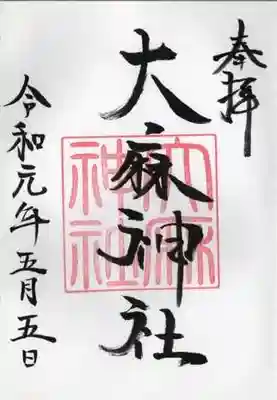 奉拝
大麻神社
大麻
神社
令和元年五月五日